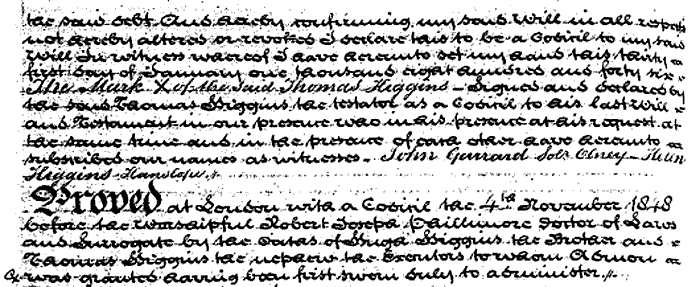 the said debt And hereby confirming my said Will in all respects
not hereby altered or revoked I declare this to be a Codicil to my said
Will In witness whereof I have hereunto set my hand this thirty
first day of January one thousand eight hundred and forty six
The Mark X of the said Thomas Higgins – Signed and declared by
the said Thomas Higgins the testator as a Codicil to his last Will
and Testament in our presence who in his presence at his request at
the same time and in the presence of each other have hereunto
subscribed our names as witnesses – John Garrard Solr Olney –
Higgins Hanslope
Proved at London with a Codicil the 4th November 1848
before the worshipful Robert Joseph Phillimore Doctor of Laws
and Surrogate by the Oaths of Hugh Higgins the Brother and
Thomas Higgins the nephew the Executors to whom Admon
was granted having been first sworn duly to administer.